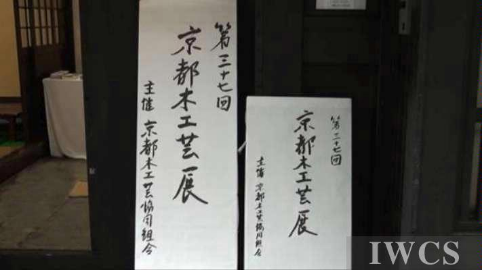 第三十七回
京都木工芸展
主催 京都木工芸協同組合
第三十七回
京都木工芸展
主催 京都木工芸協同組合
IWCS